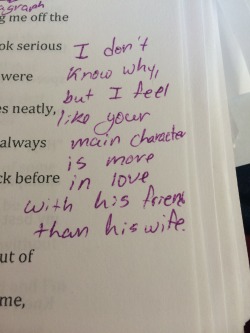 agraph
ng me off the
ok serious
were
es neatly,
always
ck before
out of
me,
I don't
know why,
but I feel
like your
main character
is more
in love
with his friend
than his wife.